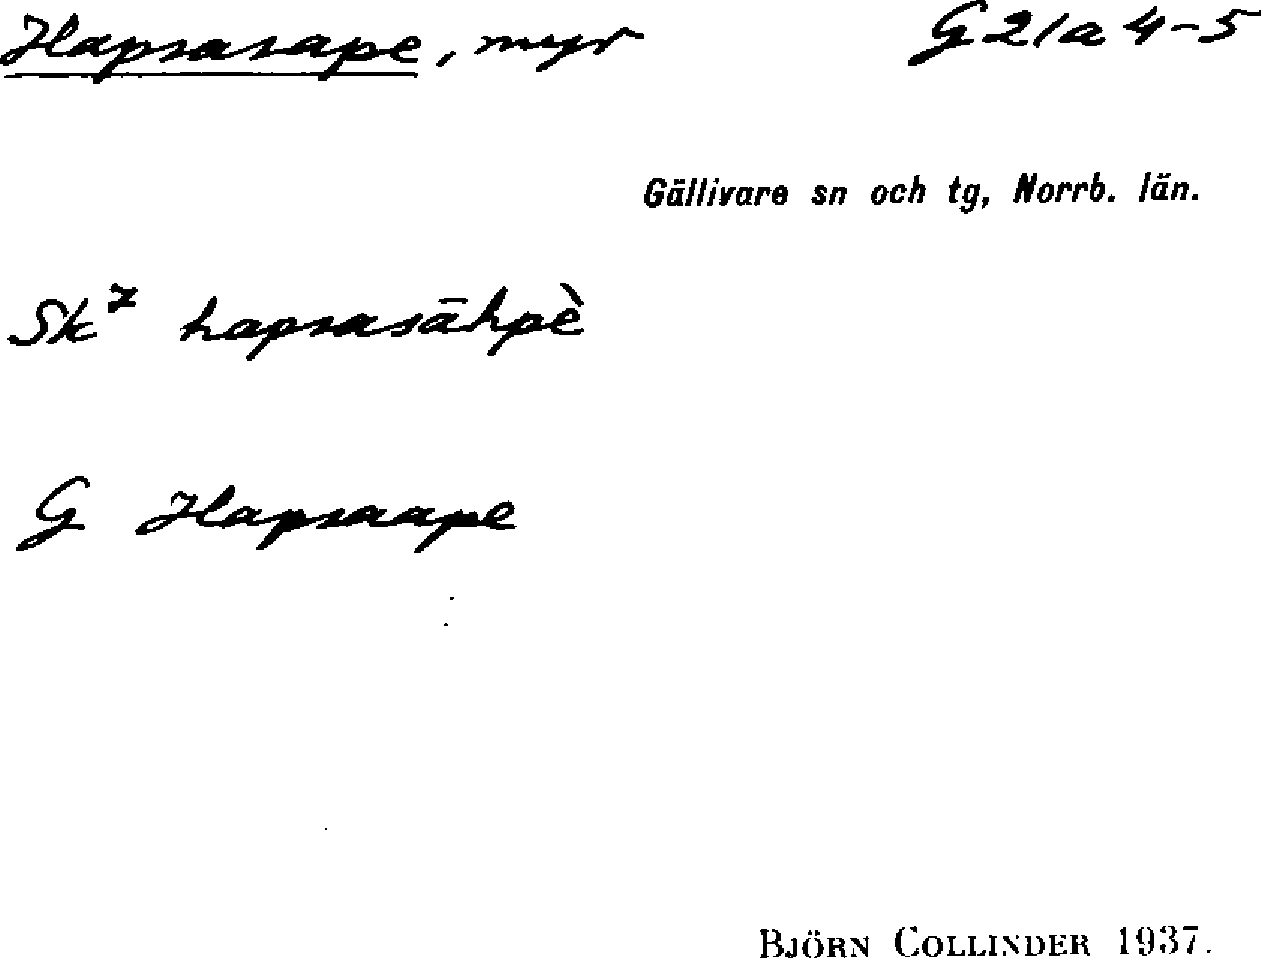 Hapsasape, myr G 21a 4-5
Gällivare sn och tg, Norrb. län.
Sk⁷ hapsasāhpè
G Hapsaape
BJÖRN COLLINDER 1937.